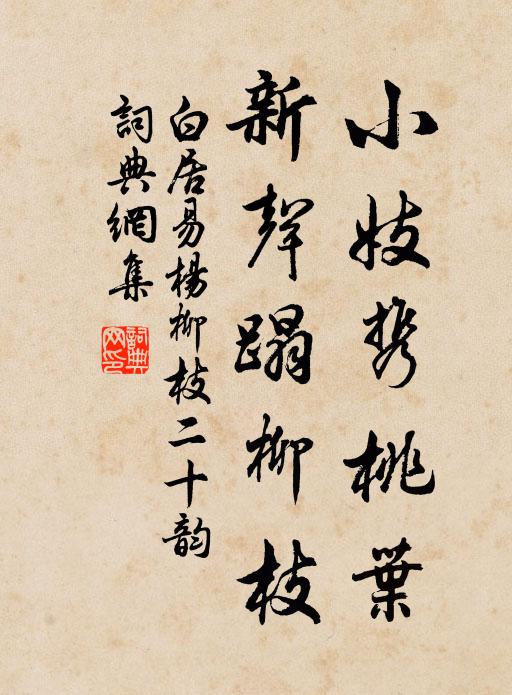 小妓携桃葉
新聲蹋柳枝
白居易楊柳枝二十韵
詞典網集
詞典網印